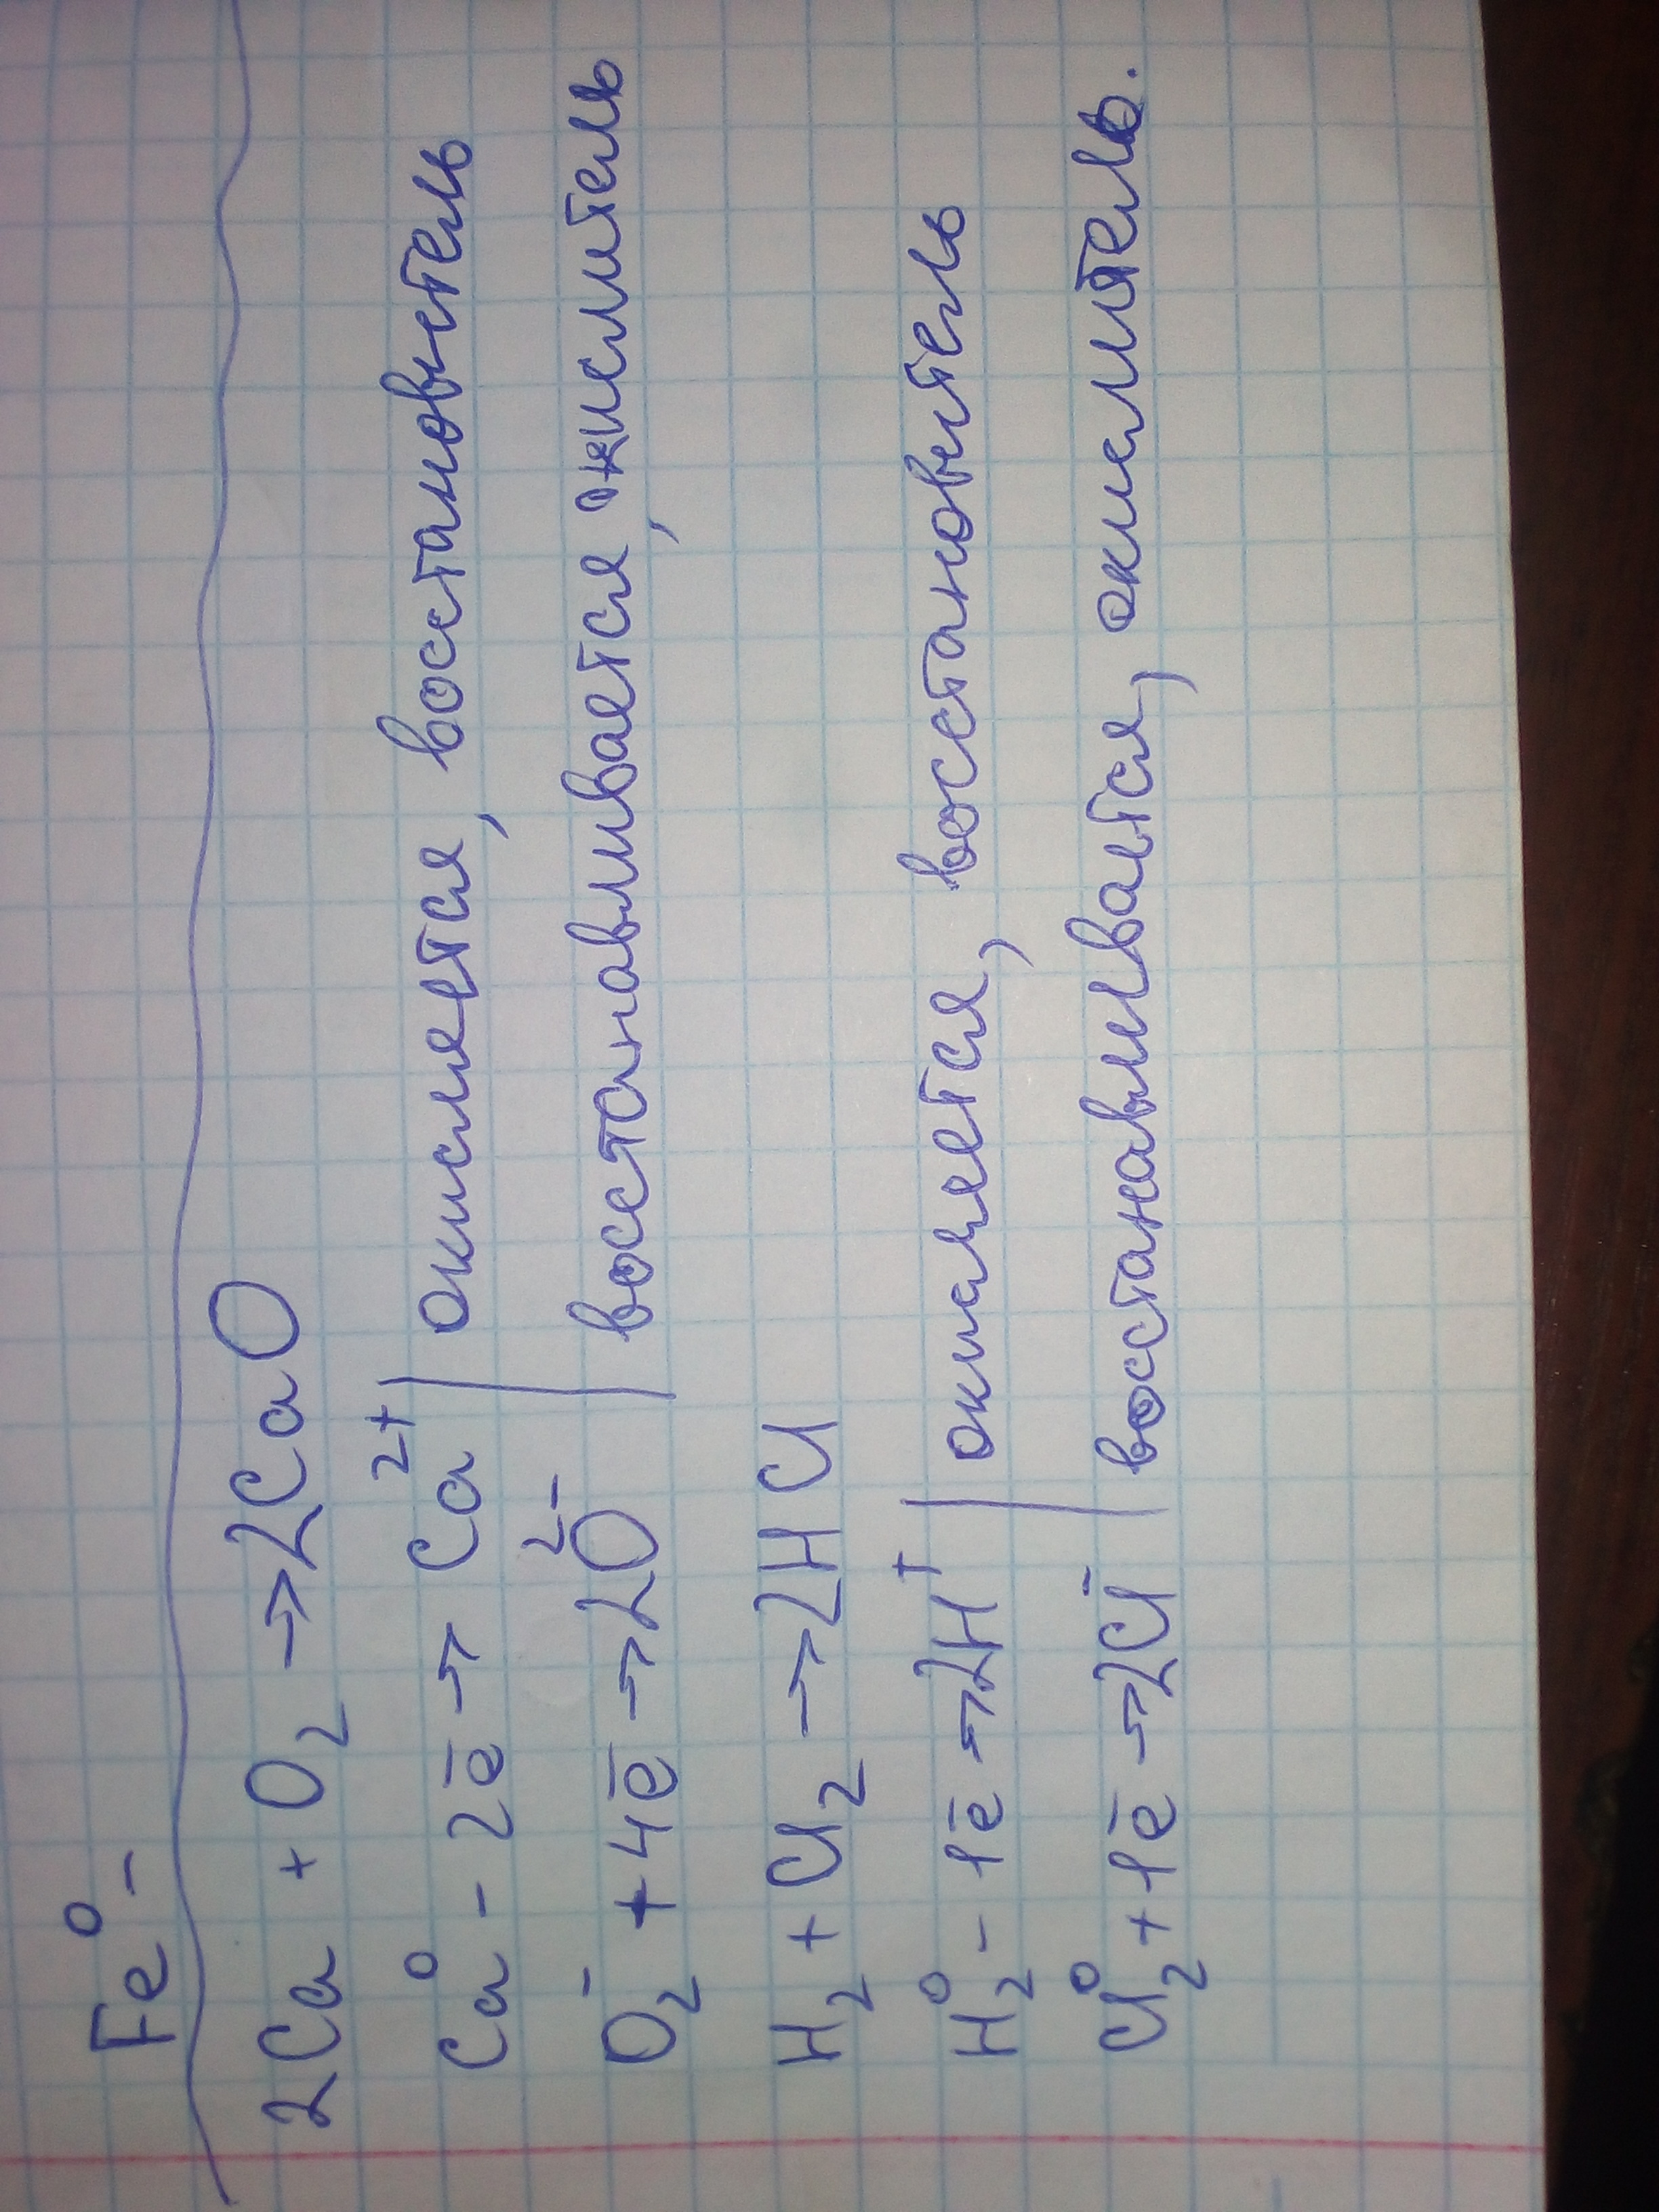 Fe⁰ -
2Ca + O₂ → 2CaO
Ca⁰ - 2ē → Ca²⁺ | окисляется, восстановитель
O₂⁻ + 4ē → 2O²⁻ | восстанавливается, окислитель
H₂ + Cl₂ → 2HCl
H₂⁰ - 1ē → 2H⁺ | окисляется, восстановитель
Cl₂⁰ + 1ē → 2Cl⁻ | восстанавливается, окислитель.